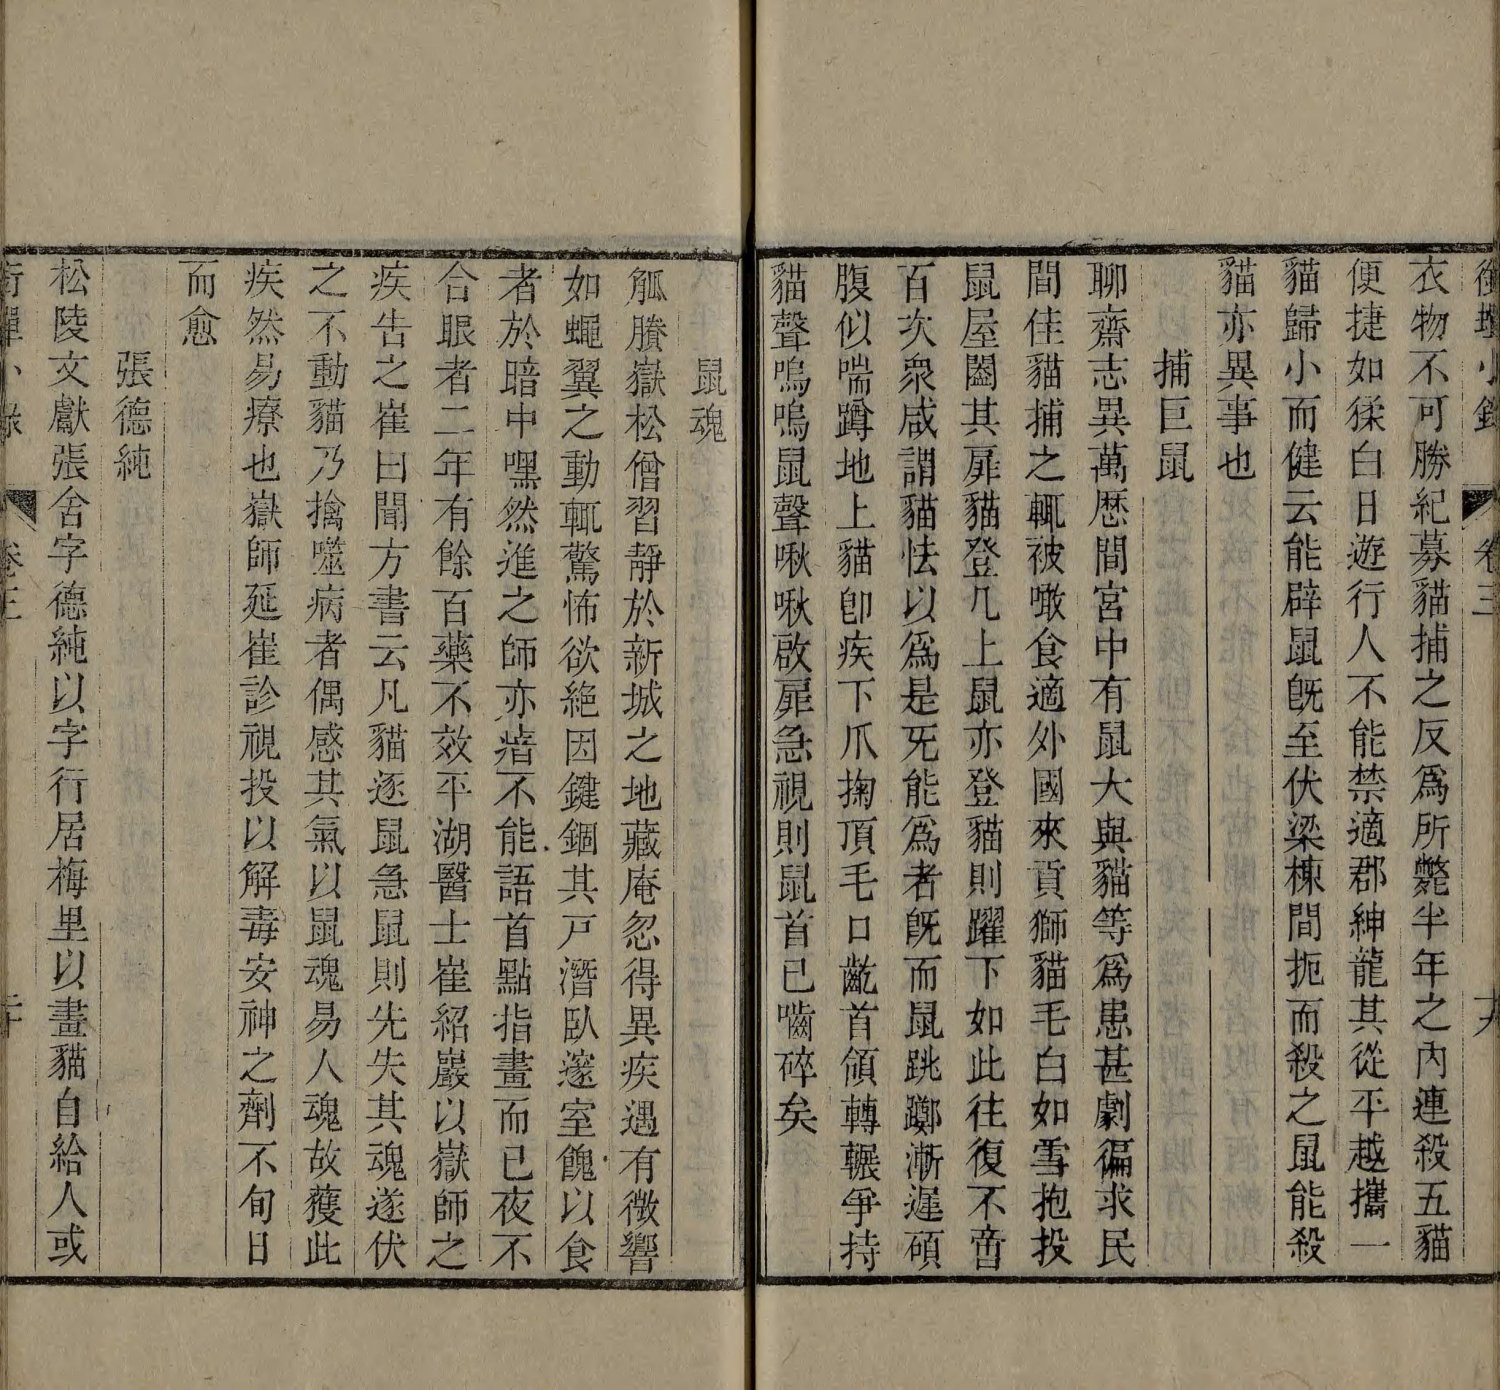 衘蟬小錄 卷三 十九
衣物不可勝紀募貓捕之反爲所斃半年之內連殺五貓
便捷如猱白日遊行人不能禁適郡紳龍其從平越攜一
貓歸小而健云能辟鼠旣至伏梁棟間扼而殺之鼠能殺
貓亦異事也
捕巨鼠
聊齋志異萬歷間宮中有鼠大與貓等爲患甚劇徧求民
間佳貓捕之輒被噉食適外國來貢獅貓毛白如雪抱投
鼠屋闔其扉貓登几上鼠亦登貓則躍下如此往復不啻
百次衆咸謂貓怯以爲是旡能爲者旣而鼠跳躑漸遲碩
腹似喘蹲地上貓卽疾下爪掬頂毛口齕首領轉輾爭持
貓聲嗚嗚鼠聲啾啾啟扉急視則鼠首已嚼碎矣
鼠魂
觚賸嶽松僧習靜於新城之地藏庵忽得異疾遇有微響
如蠅翼之動輒驚怖欲絕因鍵錮其戸潛臥邃室餽以食
者於暗中嘿然進之師亦瘖不能語首點指畫而已夜不
合眼者二年有餘百藥不效平湖醫士崔紹巖以嶽師之
疾告之崔曰聞方書云凡貓逐鼠急鼠則先失其魂遂伏
之不動貓乃擒噬病者偶感其氣以鼠魂易人魂故獲此
疾然易療也嶽師延崔診視投以解毒安神之劑不旬日
而愈
張德純
松陵文獻張舍字德純以字行居梅里以畫貓自給人或
衘蟬小錄 卷三 二十